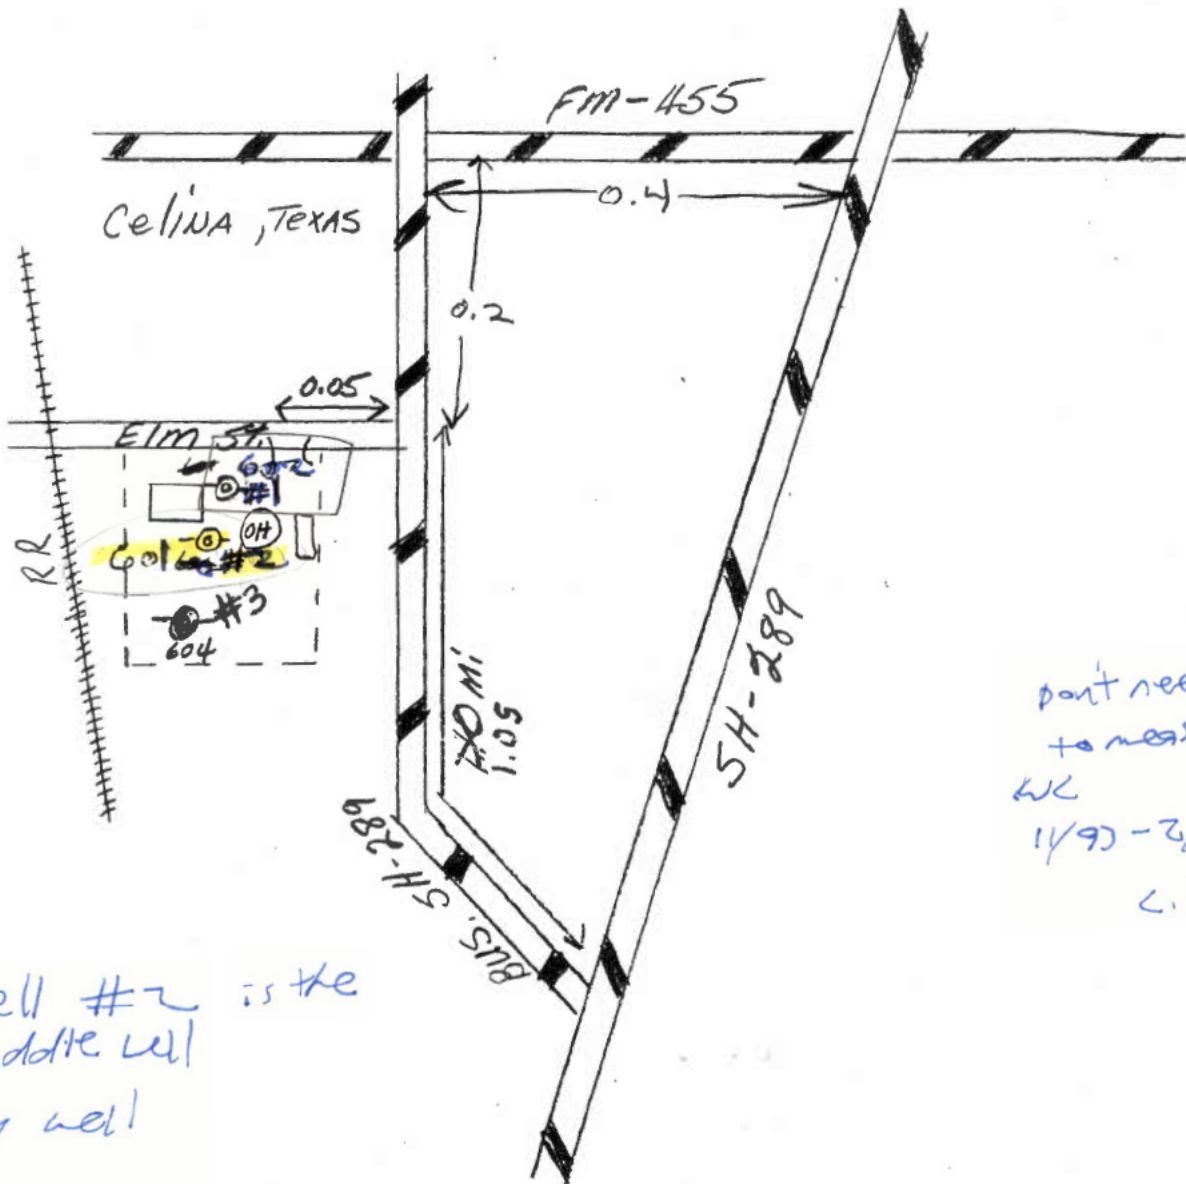 FM-455
0.4
Celina, Texas
0.2
0.05
Elm St.
602
#1
OH
601 #2
#3
604
RR
1.0 Mi
1.05
SH-289
BUS. SH-289
Don't nee
to meas
11/93 -
ell #2 is the
ddle well
well